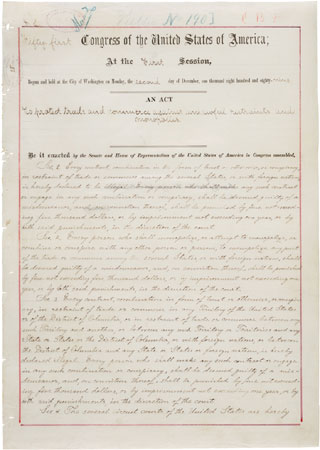 Public No 190 3
Fifty first Congress of the United States of America;
At the First Session,
Begun and held at the City of Washington on Monday, the second day of December, one thousand eight hundred and eighty-nine
AN ACT
To protect trade and commerce against unlawful restraints and
monopolies
Be it enacted by the Senate and House of Representatives of the United States of America in Congress assembled,
Sec. 1. Every contract, combination in the form of trust or otherwise, or conspiracy,
in restraint of trade or commerce among the several States, or with foreign nations,
is hereby declared to be illegal. Every person who shall make any such contract
or engage in any such combination or conspiracy, shall be deemed guilty of a
misdemeanor, and, on conviction thereof, shall be punished by fine not exceed-
ing five thousand dollars, or by imprisonment not exceeding one year, or by
both said punishments, in the discretion of the court.
Sec. 2. Every person who shall monopolize, or attempt to monopolize, or
combine or conspire with any other person or persons, to monopolize any part
of the trade or commerce among the several States, or with foreign nations, shall
be deemed guilty of a misdemeanor, and, on conviction thereof, shall be punished
by fine not exceeding five thousand dollars, or by imprisonment not exceeding one
year, or by both said punishments, in the discretion of the court.
Sec. 3. Every contract, combination in form of trust or otherwise, or conspir-
acy, in restraint of trade or commerce in any Territory of the United States
or of the District of Columbia, or in restraint of trade or commerce between any
such Territory and another, or between any such Territory or Territories and any
State or States or the District of Columbia, or with foreign nations, or between
the District of Columbia and any State or States or foreign nations, is hereby
declared illegal. Every person who shall make any such contract or engage
in any such combination or conspiracy, shall be deemed guilty of a misde-
meanor, and, on conviction thereof, shall be punished by fine not exceed-
ing five thousand dollars, or by imprisonment not exceeding one year, or by
both said punishments, in the discretion of the court.
Sec. 4. The several circuit courts of the United States are hereby